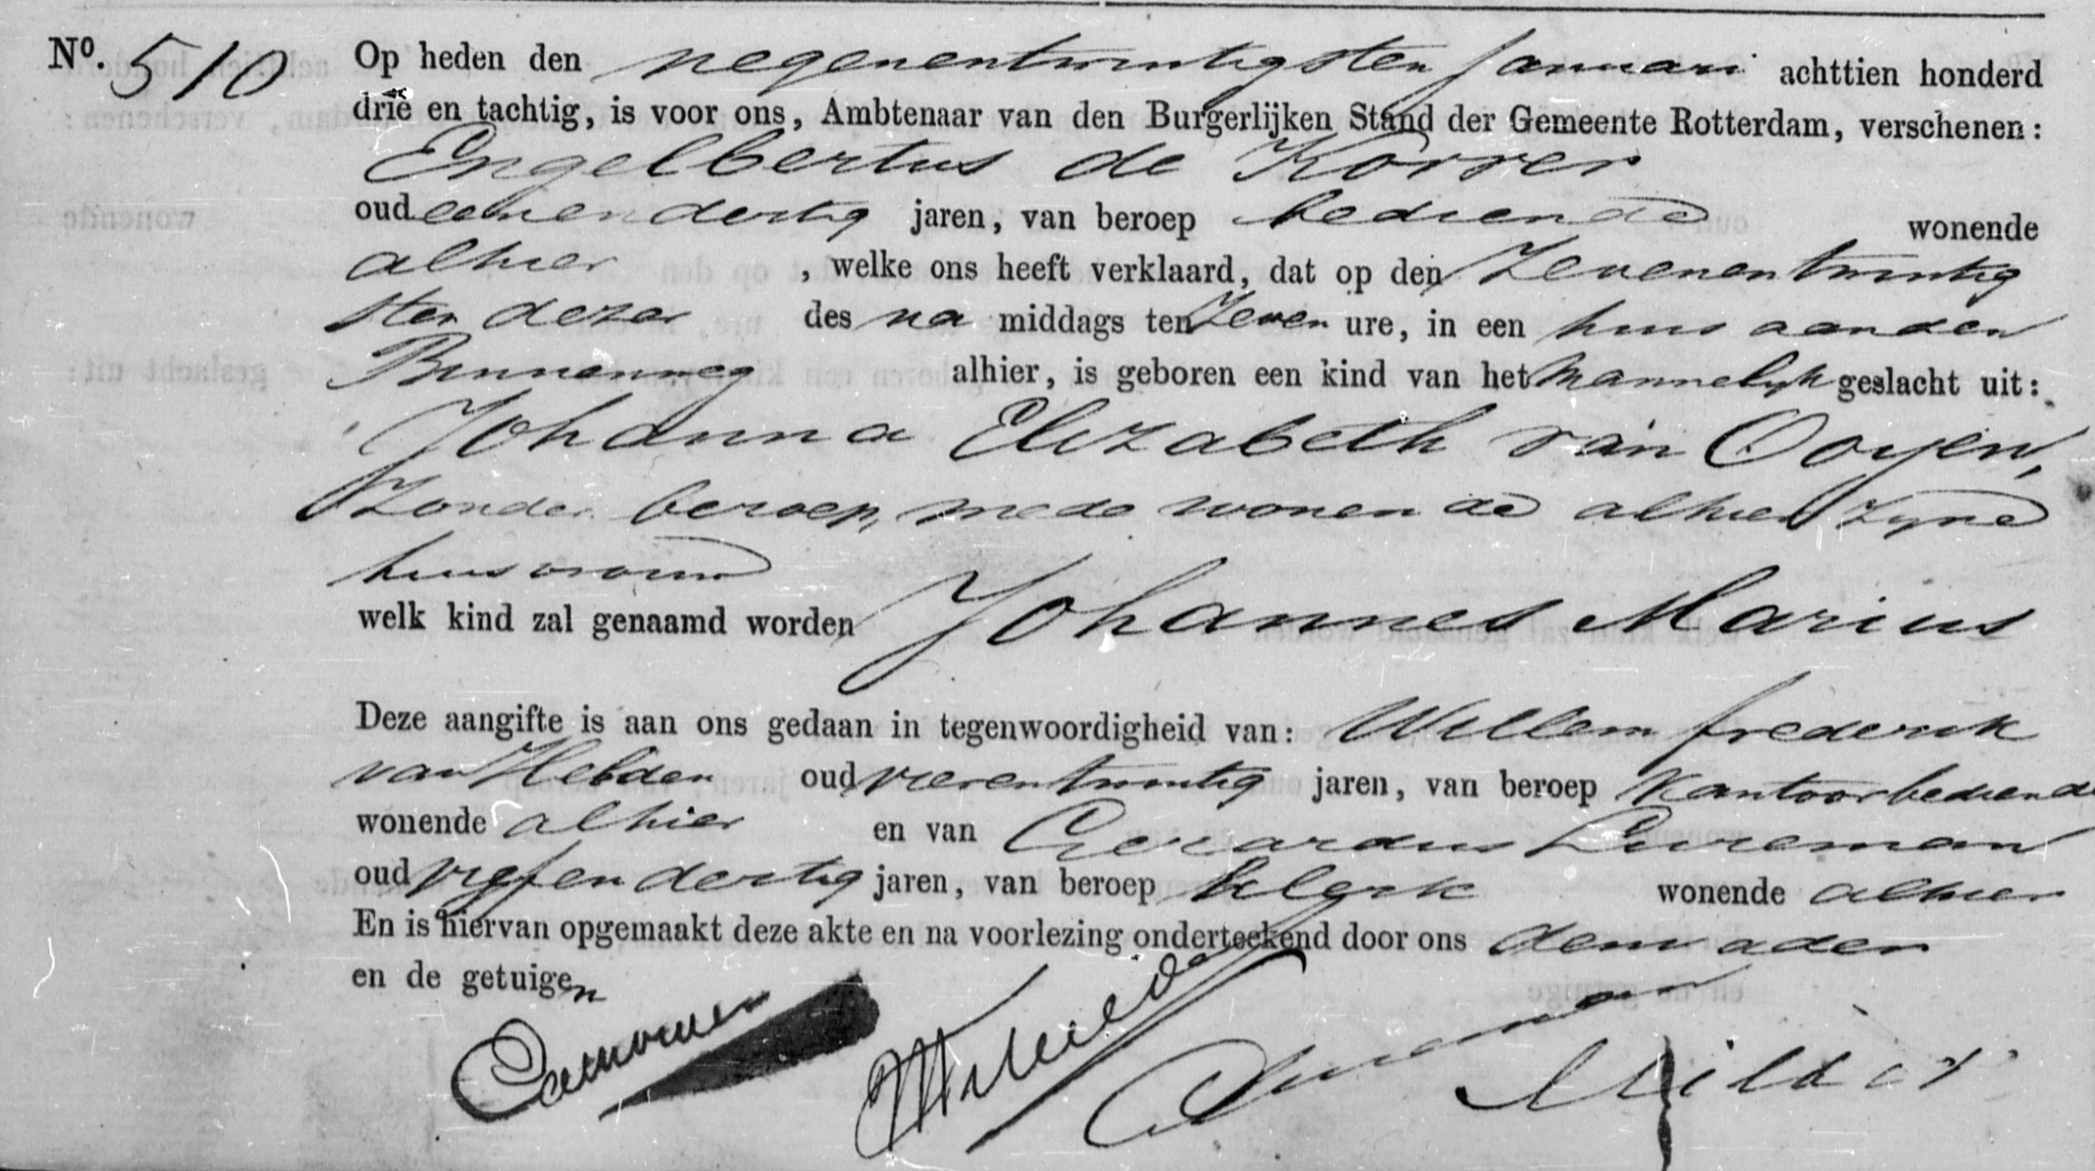 No. 510 Op heden den negenentwintigsten Januari achttien honderd
drie en tachtig, is voor ons, Ambtenaar van den Burgerlijken Stand der Gemeente Rotterdam, verschenen:
Engelbertus de Korver
oud eenendertig jaren, van beroep bediende wonende
alhier , welke ons heeft verklaard, dat op den zevenentwintig
sten dezer des na middags ten zeven ure, in een huis aanden
Binnenweg alhier, is geboren een kind van het mannelijk geslacht uit:
Johanna Elizabeth van Ooyen,
zonder beroep, mede wonende alhier zyne
huisvrouw
welk kind zal genaamd worden Johannes Marius
Deze aangifte is aan ons gedaan in tegenwoordigheid van: Willem frederik
van oud vierentwintig jaren, van beroep Kantoorbediende
wonende alhier en van Gerardus
oud vyfendertig jaren, van beroep klerk wonende alhier
En is hiervan opgemaakt deze akte en na voorlezing onderteekend door ons den vader
en de getuigen